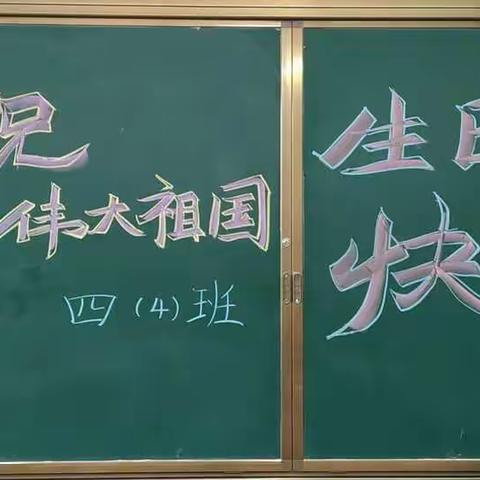 祝
伟大祖国
四（4）班
生日
快